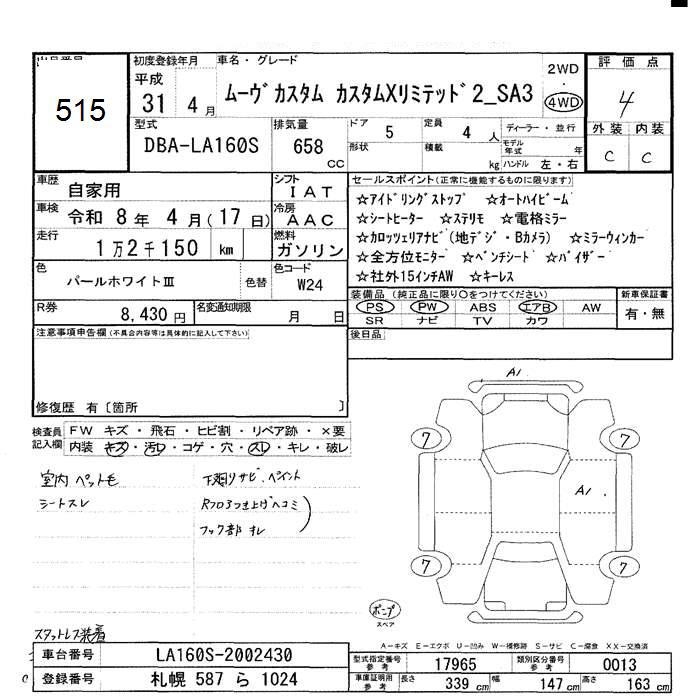 515
初度登録年月
平成
31 4月
車名・グレード
ムーヴカスタム カスタムXリミテッド2_SA3
2WD
4WD
評価点
4
外装 内装
C C
型式
DBA-LA160S
排気量
658
CC
ドア
5
形状
定員
4人
積載
kg
ディーラー・並行
モデル年式 年
ハンドル 左・右
車歴
自家用
車検
令和 8年 4月(17日)
走行
1万2千150 km
シフト
IAT
冷房
AAC
燃料
ガソリン
セールスポイント(正常に機能するものに限ります)
☆アイドリングストップ ☆オートハイビーム
☆シートヒーター ☆ステリモ ☆電格ミラー
☆カロッツェリアナビ(地デジ・Bカメラ) ☆ミラーウィンカー
☆全方位モニター ☆ベンチシート ☆バイザー
☆社外15インチAW ☆キーレス
色
パールホワイトⅢ
色替
色コード
W24
R券
8,430円
名変通知期限
月 日
装備品(純正品に限り○をつけてください)
PS PW ABS エアB AW
SR ナビ TV カワ
新車保証書
有・無
注意事項申告欄(不具合内容等は具体的に記入して下さい)
後日品
修復歴 有〔箇所 〕
検査員記入欄
FW キズ・飛石・ヒビ割・リペア跡・×要
内装 キズ・汚レ・コゲ・穴・スレ・キレ・破レ
室内 ペット毛
シートスレ
下廻りサビ.ペイント
Rフロアつき上げヘコミ
フック部 オレ
スタットレス装着
A1
7
7
A1
7
7
スペア
A-キズ E-エクボ U-凹み W-補修跡 S-サビ C-腐食 XX-交換済
車台番号
LA160S-2002430
登録番号
札幌 587 ら 1024
型式指定番号
参考
17965
類別区分番号
参考
0013
車庫証明用
参考
長さ 339 cm
幅 147 cm
高さ 163 cm